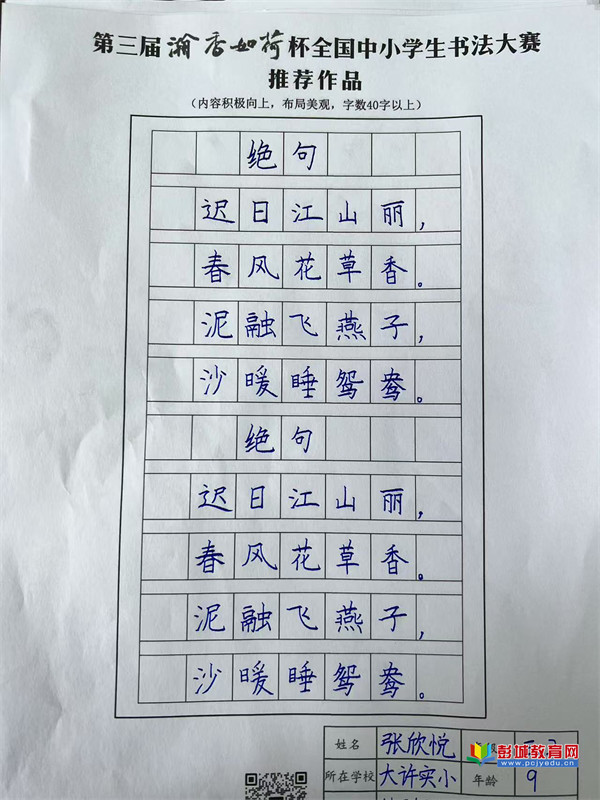 第三届瀚香如荷杯全国中小学生书法大赛
推荐作品
（内容积极向上，布局美观，字数40字以上）
绝句
迟日江山丽，
春风花草香。
泥融飞燕子，
沙暖睡鸳鸯。
绝句
迟日江山丽，
春风花草香。
泥融飞燕子，
沙暖睡鸳鸯。
姓名 张欣悦
所在学校 大许实小 年龄 9
彭城教育网
www.pcjyedu.cn